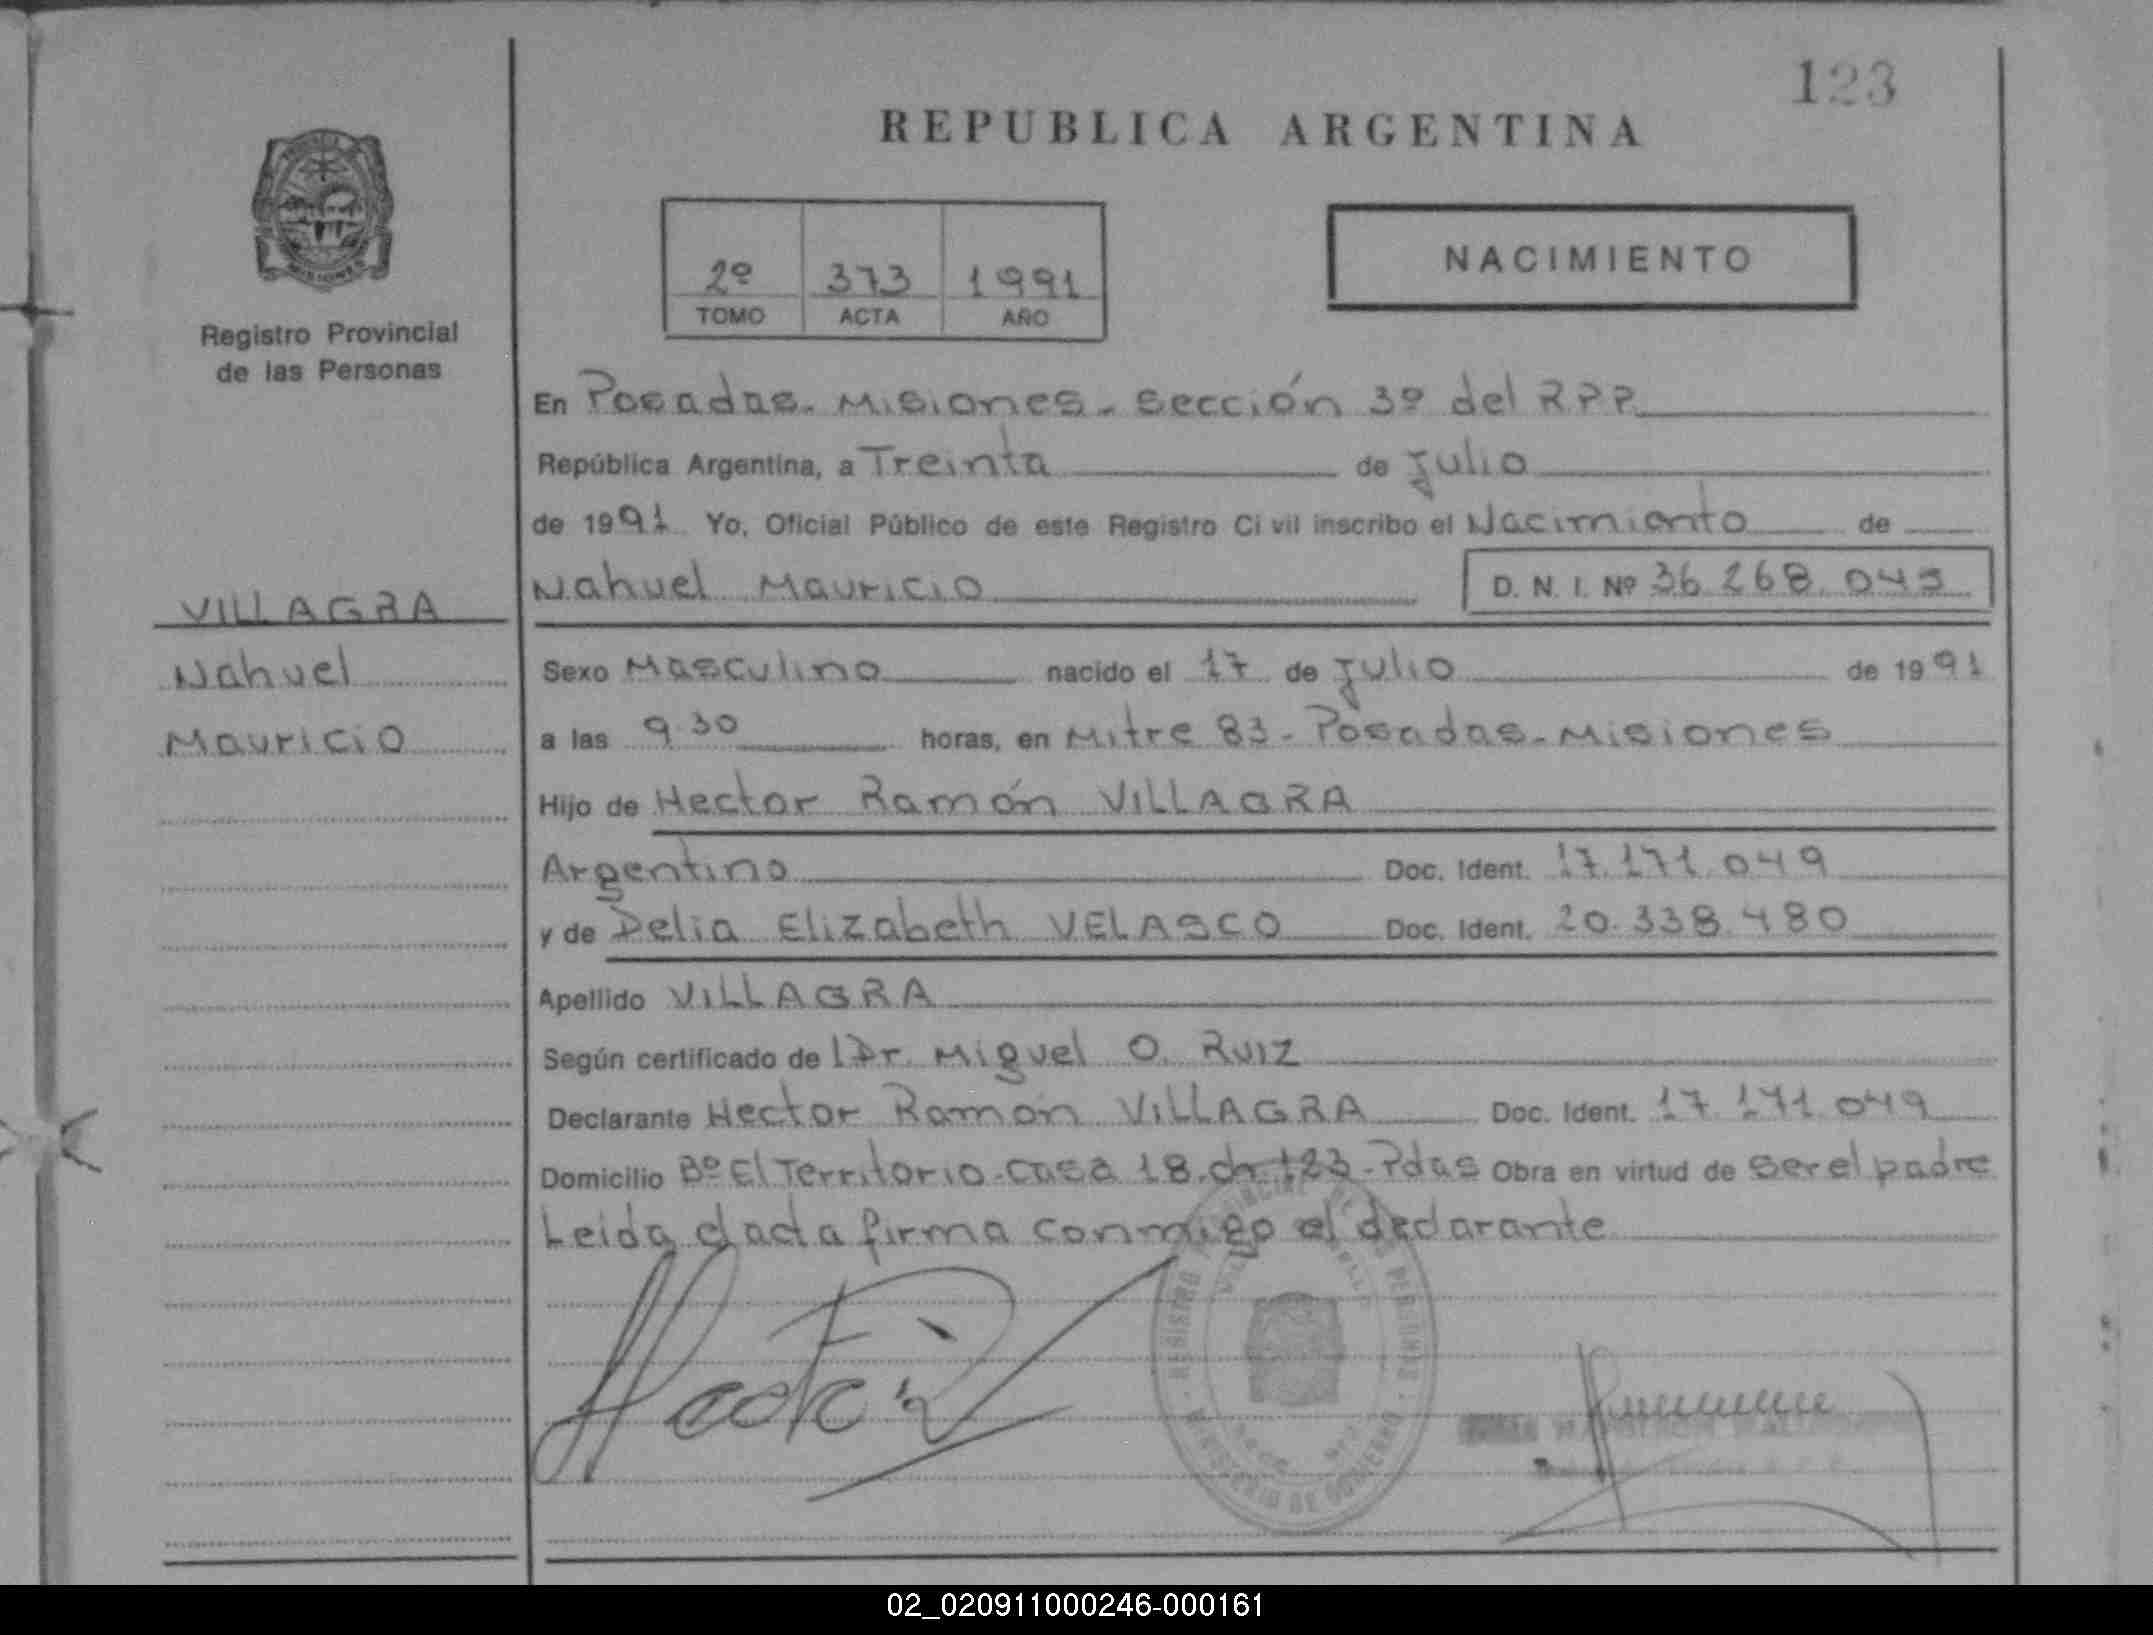 123
REPUBLICA ARGENTINA
2º 373 1991
TOMO ACTA AÑO
NACIMIENTO
Registro Provincial
de las Personas
En Posadas. Misiones. sección 3º del R.P.P.
República Argentina, a Treinta de Julio
de 1991 Yo, Oficial Público de este Registro Civil inscribo el Nacimiento de
Nahuel Mauricio D. N. I. Nº 36.268.043
VILLAGRA
Nahuel
Mauricio
Sexo Masculino nacido el 17 de Julio de 1991
a las 9.30 horas, en Mitre 83 - Posadas - Misiones
Hijo de Hector Ramón VILLAGRA
Argentino Doc. Ident. 17.171.049
y de Delia Elizabeth VELASCO Doc. Ident. 20.338.480
Apellido VILLAGRA
Según certificado de Dr. Miguel O. Ruiz
Declarante Hector Ramón VILLAGRA Doc. Ident. 17.171.049
Domicilio Bº El Territorio - casa 18. ch 123 - Pdas Obra en virtud de ser el padre
Leida el acta firma conmigo el declarante
REGISTRO PROVINCIAL DE LAS PERSONAS
MINISTERIO DE GOBIERNO
02_020911000246-000161